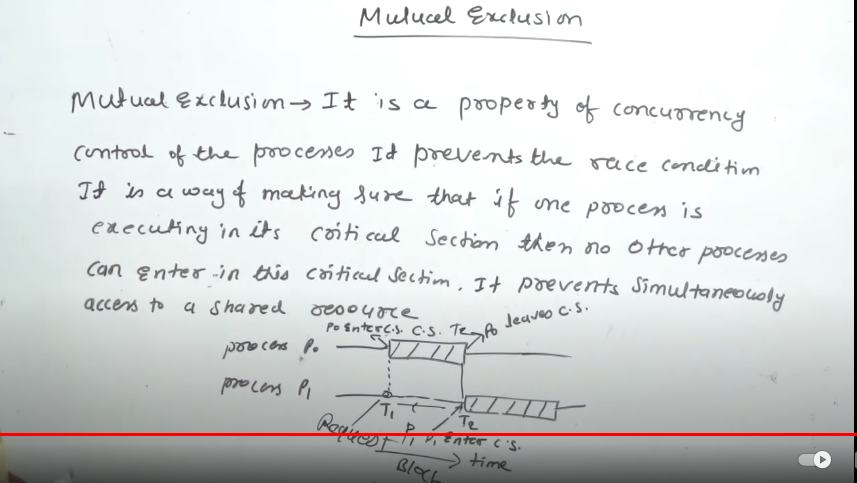 Mutual Exclusion
Mutual Exclusion → It is a property of concurrency
control of the processes It prevents the race condition
It is a way of making sure that if one process is
executing in its critical section then no other processes
can enter in this critical section. It prevents simultaneously
access to a shared resource
P0 Enter C.S. C.S. T2 P0 leaves C.S.
process P0
process P1
T1 T2
Request P1 P1 Enter C.S.
Block time